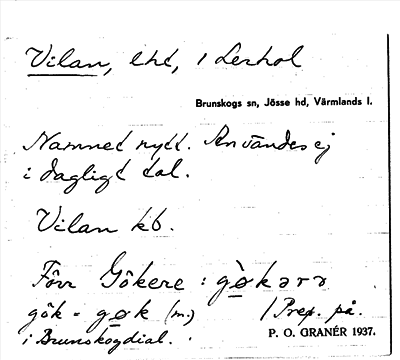 Vilan, lht, i Lerhol
Brunskogs sn, Jösse hd, Värmlands l.
Namnet nytt. Användes ej
i dagligt tal.
Vilan kb.
Förr Gökere : gø̀kərə
gök = gøk (m.) / Prep. på.
i Brunskogdial. P. O. GRANÉR 1937.